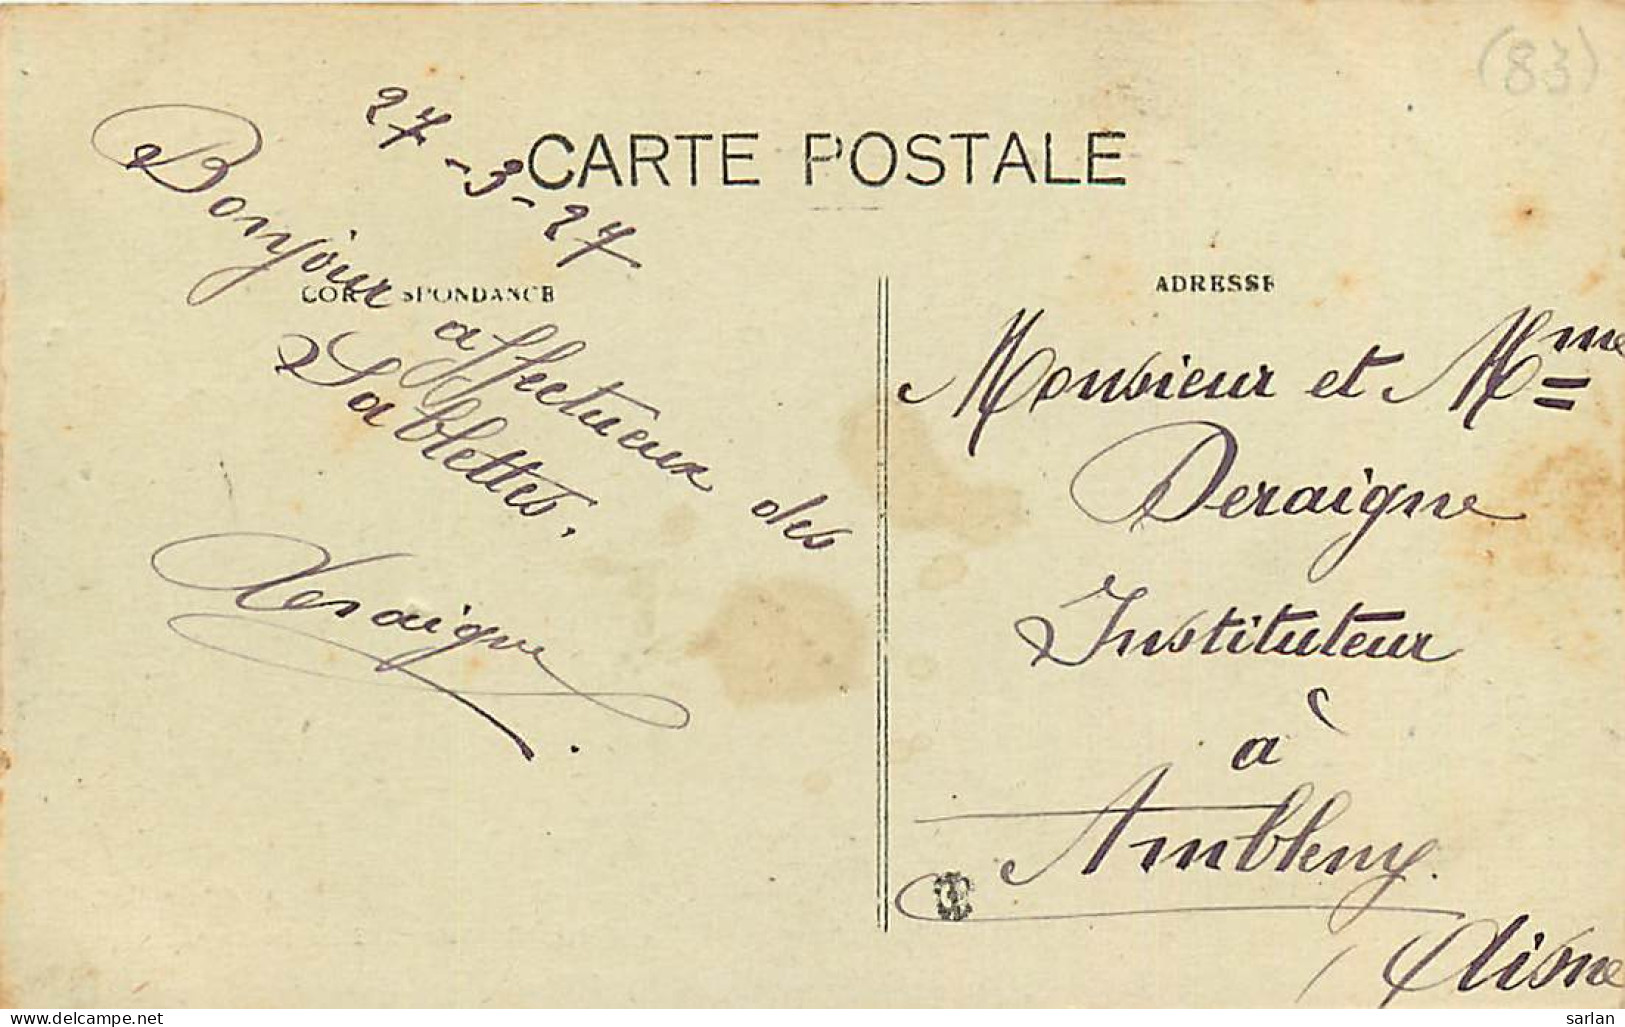 (83)
CARTE POSTALE
27-3-27
CORRESPONDANCE
Bonjour affectueux des
Sablettes.
Deraigne
ADRESSE
Monsieur et Mme
Deraigne
Instituteur
à
Ambleny.
(Aisne
www.delcampe.net
sarlan